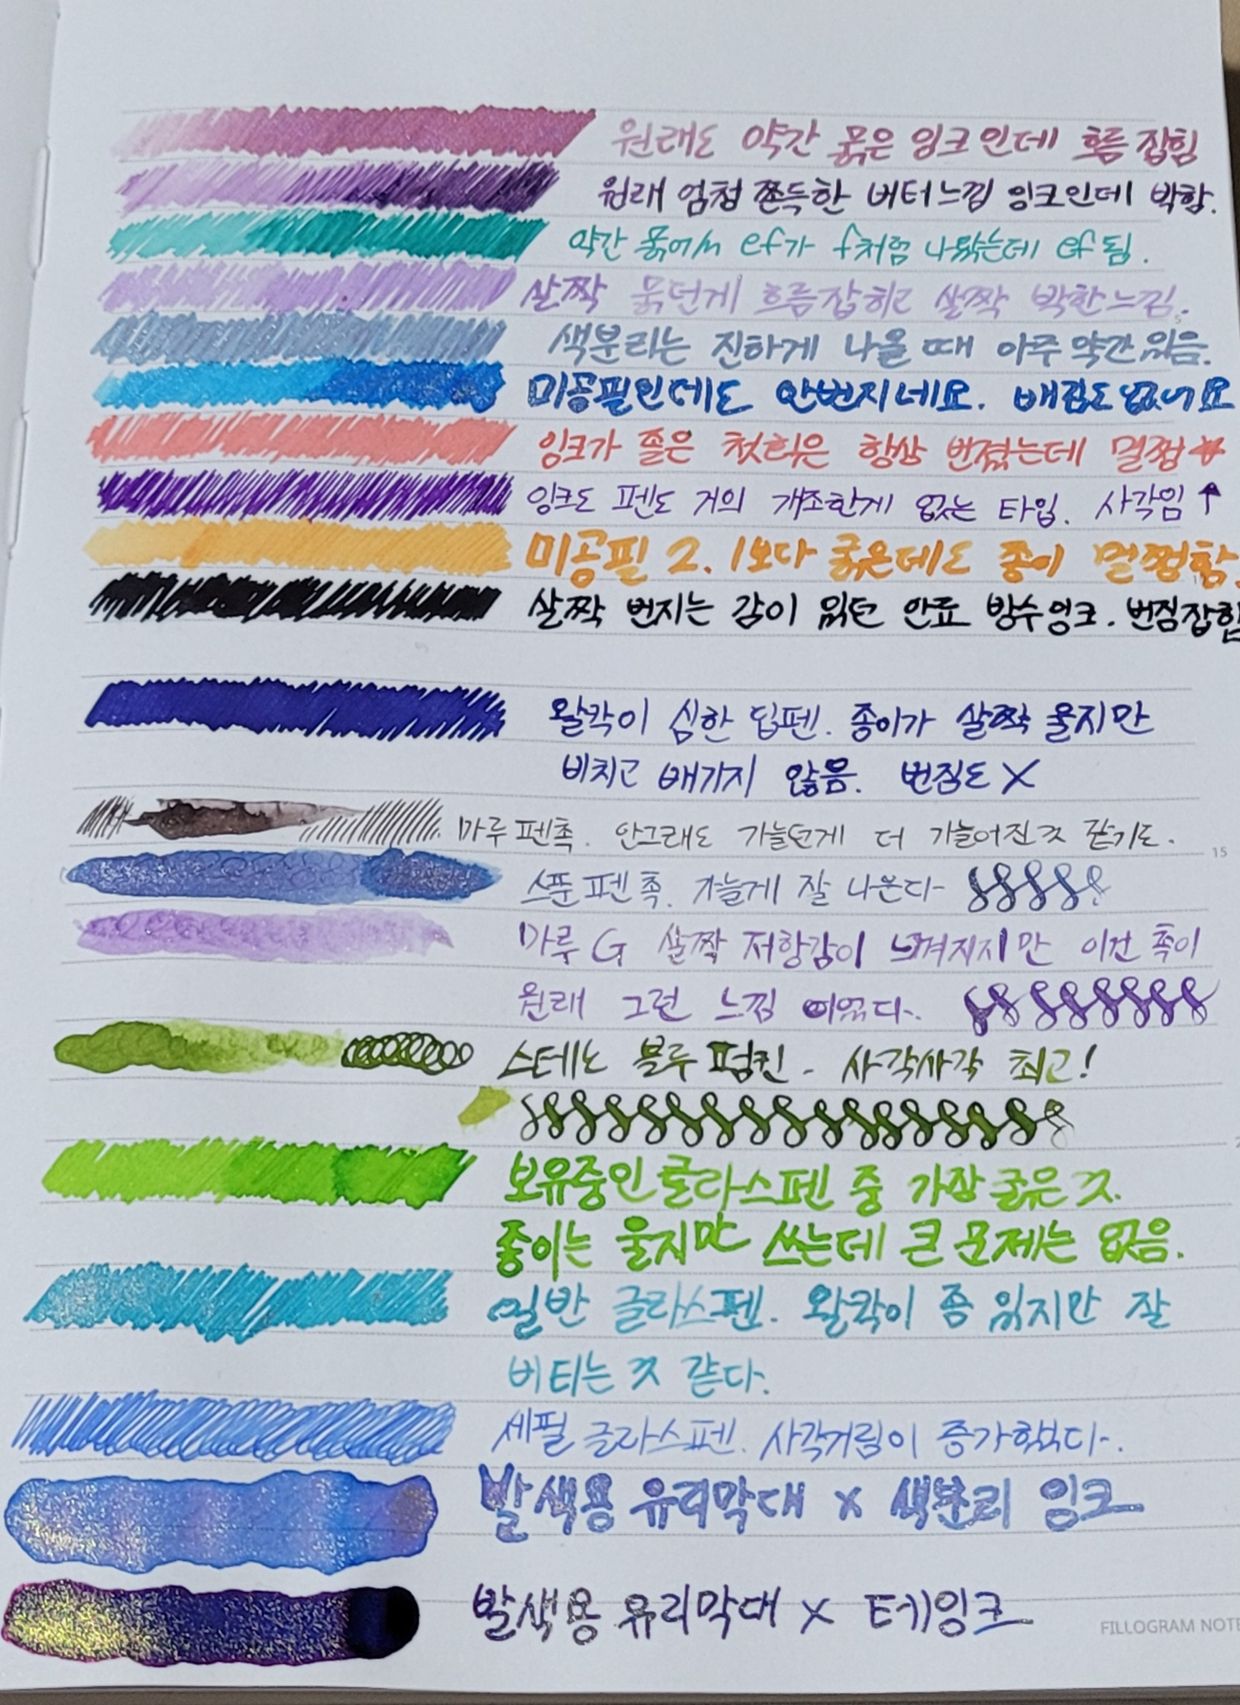 원래도 약간 묽은 잉크인데 흐름 잡힘
원래 엄청 쫀득한 버터느낌 잉크인데 박함.
약간 묽어서 ef가 f처럼 나왔는데 ef됨.
살짝 묽던게 흐름잡히고 살짝 박한느낌.
색분리는 진하게 나올 때 아주 약간 있음.
미공필인데도 안번지네요. 배김도 없어요
잉크가 졸은 첫획은 항상 번졌는데 멀쩡
잉크도 펜도 거의 개조한게 없는 타입. 사각임 ↑
미공필 2. 1보다 굵은데도 종이 멀쩡함.
살짝 번지는 감이 있던 안료 방수잉크. 번짐잡힘
왈칵이 심한 딥펜. 종이가 살짝 울지만
비치고 배기지 않음. 번짐도 X
마루 펜촉. 안그래도 가늘던게 더 가늘어진 것 같기도.
15
스푼 펜촉. 가늘게 잘 나온다-
마루 G 살짝 저항감이 느껴지지만 이건 촉이
원래 그런 느낌 이었다-.
스테노 블루 펌킨 - 사각사각 최고!
보유중인 글라스펜 중 가장 굵은 것.
종이는 울지만 쓰는데 큰 문제는 없음.
일반 글라스펜. 왈칵이 좀 있지만 잘
버티는 것 같다.
세필 글라스펜. 사각거림이 증가했다-.
발색용 유리막대 x 색분리 잉크
발색용 유리막대 x 테잉크
FILLOGRAM NOTE